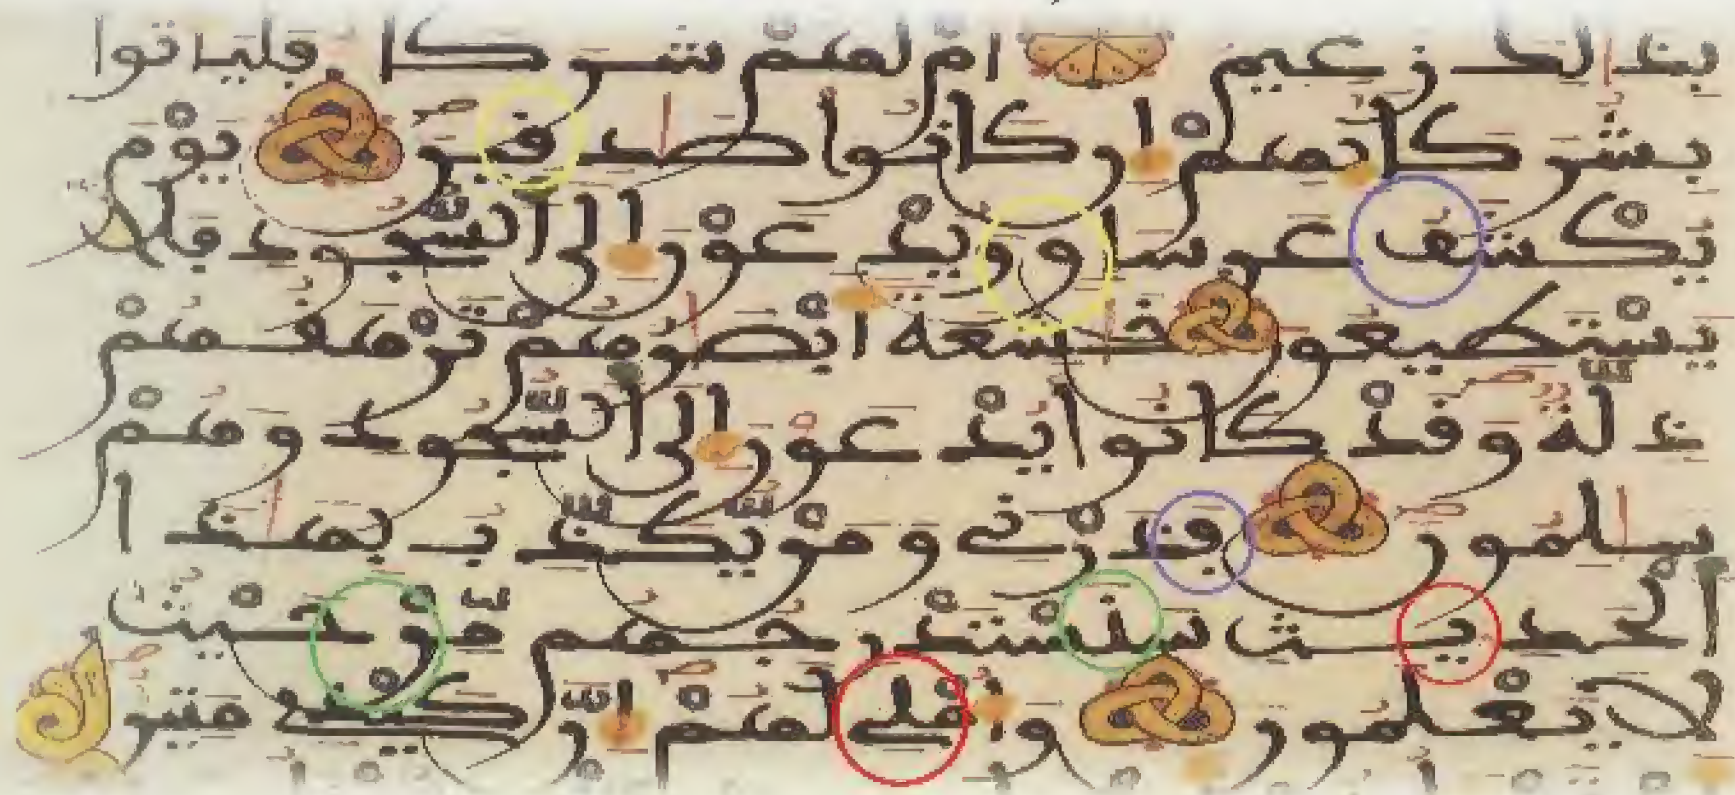 بذلك زعيم اَمْ لهمْ شركا فلياتوا
بشركايهمْ اِن كانوا صدفين يوْم
يكْشف عن ساو ويدْعوْن اِلى السّجود فلا
يسْتطيعون خشعة اَبْصرهمْ ترْهفهمْ
ذلة وفدْ كانوا يدْعوْن اِلى السّجود وهمْ
سلمون فذرْني ومنْ يّكذّب بهذا
اَلْحديث سنسْتدْرجهم مّنْ حيْث
لا يعْلمون واُملي لهمْ اِنّ كيْدي متين